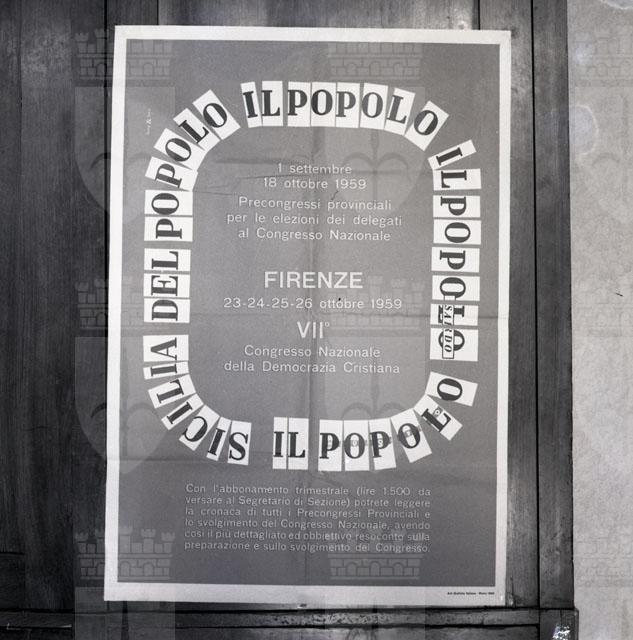 IL POPOLO
IL POPOLO
SARDO
IL POPOLO
SICILIA DEL POPOLO
1 settembre
18 ottobre 1959
Precongressi provinciali
per le elezioni dei delegati
al Congresso Nazionale
FIRENZE
23-24-25-26 ottobre 1959
VII°
Congresso Nazionale
della Democrazia Cristiana
Con l'abbonamento trimestrale (lire 1.500 da
versare al Segretario di Sezione) potrete leggere
la cronaca di tutti i Precongressi Provinciali e
lo svolgimento del Congresso Nazionale, avendo
così il più dettagliato ed obbiettivo resoconto sulla
preparazione e sullo svolgimento del Congresso.